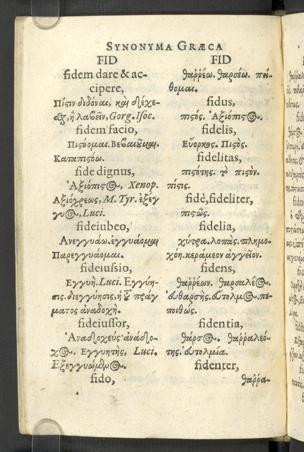 SYNONYMA GRÆCA
FID
fidem dare & ac-
cipere,
Πίστιν διδόναι, καὶ δέχε-
ἢ λαβεῖν, Gorg. Isoc.
fidem facio,
Πιστόομαι. Βεβαιόω.
Καταπιστόω.
fide dignus,
Ἀξιόπιστος, Xenop.
Ἀξιόχρεως, M. Tyr. ἐχέγ-
γυος, Luci.
fideiubeo,
Ἀνεγγυάω, ἐγγυάομαι
Παρεγγυάομαι.
fideiussio,
Ἐγγυή. Luci. Ἐγγύη-
σις. διεγγύησις, ἡ πράγ-
ματος ἀναδοχή.
fideiussor,
Ἀναδοχεύς. ἀνάδο-
χος. Ἐγγυητής, Luci.
Ἐξεγγυώμενος.
fido,
FID
θαῤῥέω. θαρσέω. πεί-
θομαι.
fidus,
πιστός. Ἀξιόπιστος.
fidelis,
Εὔορκος. Πιστός.
fidelitas,
πιστότης. τὸ πιστόν.
πίστις.
fidè, fideliter,
πιστῶς.
fidelia,
χύτρα. λοπάς. πλημο-
χόη. κεράμεον ἀγγεῖον.
fidens,
θαῤῥέων. θαρσαλέος.
εὐθαρσής. εὔτολμος. πε-
ποιθώς.
fidentia,
θάρσος. θαῤῥαλεό-
της. εὐτολμία.
fidenter,
θαῤῥα-